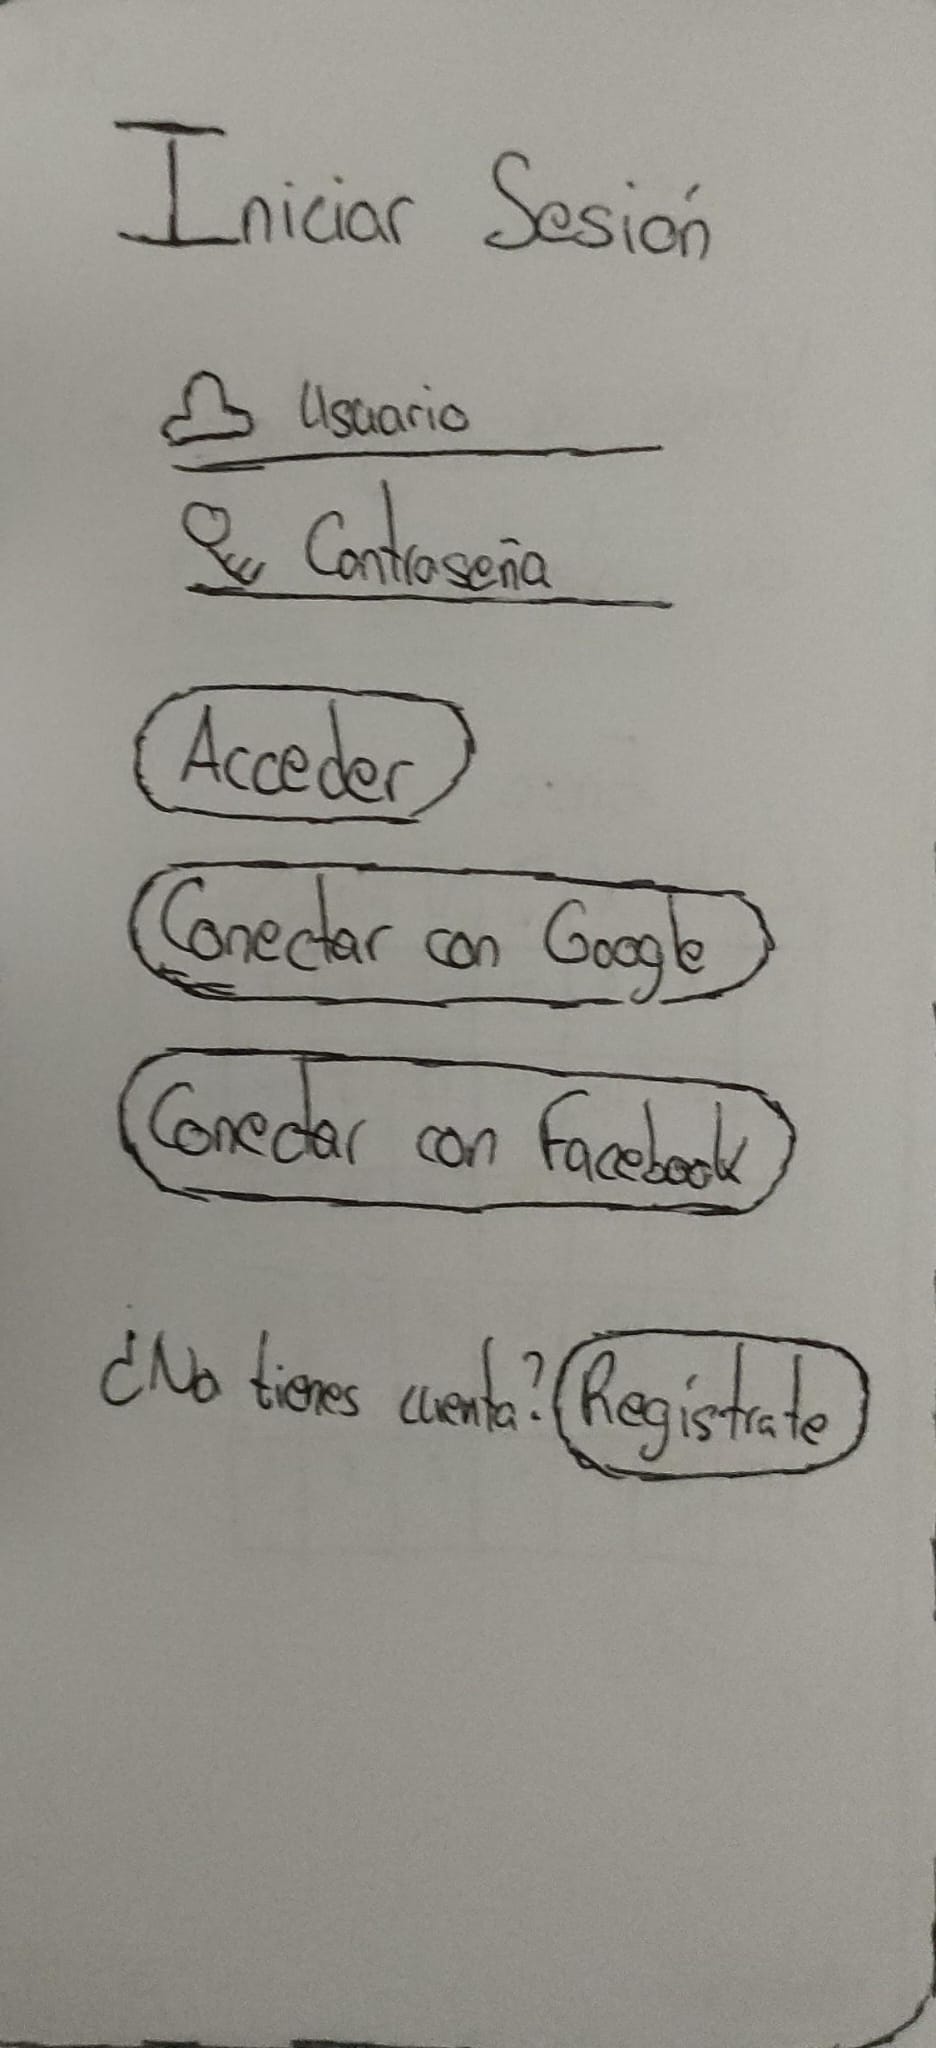 Iniciar Sesión
Usuario
Contraseña
Acceder
Conectar con Google
Conectar con Facebook
¿No tienes cuenta? Regístrate